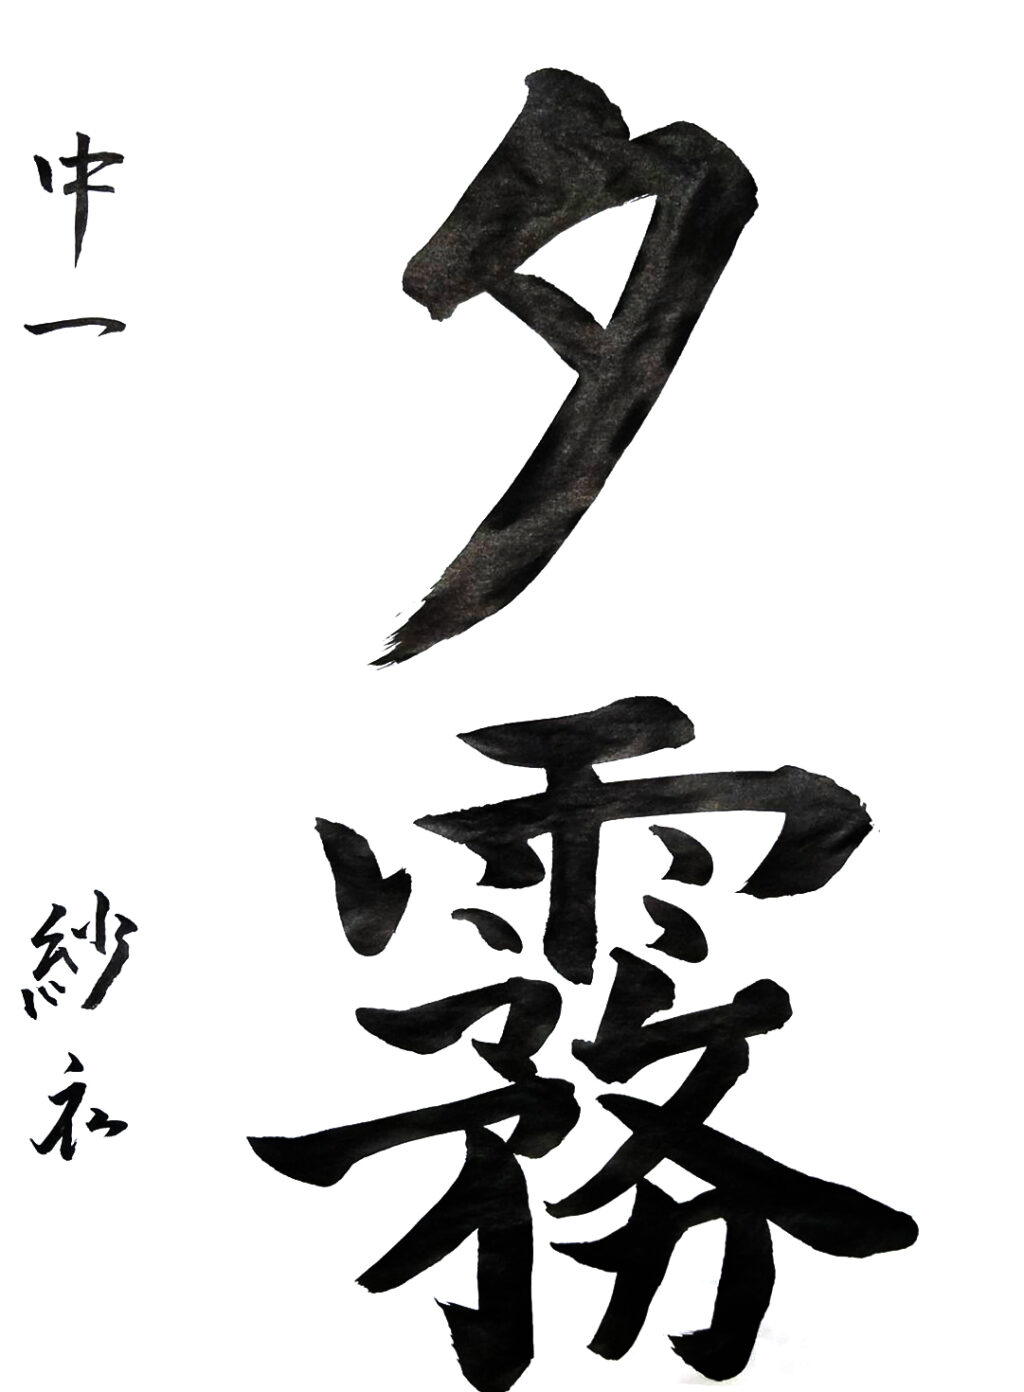 夕霧
中一 紗衣